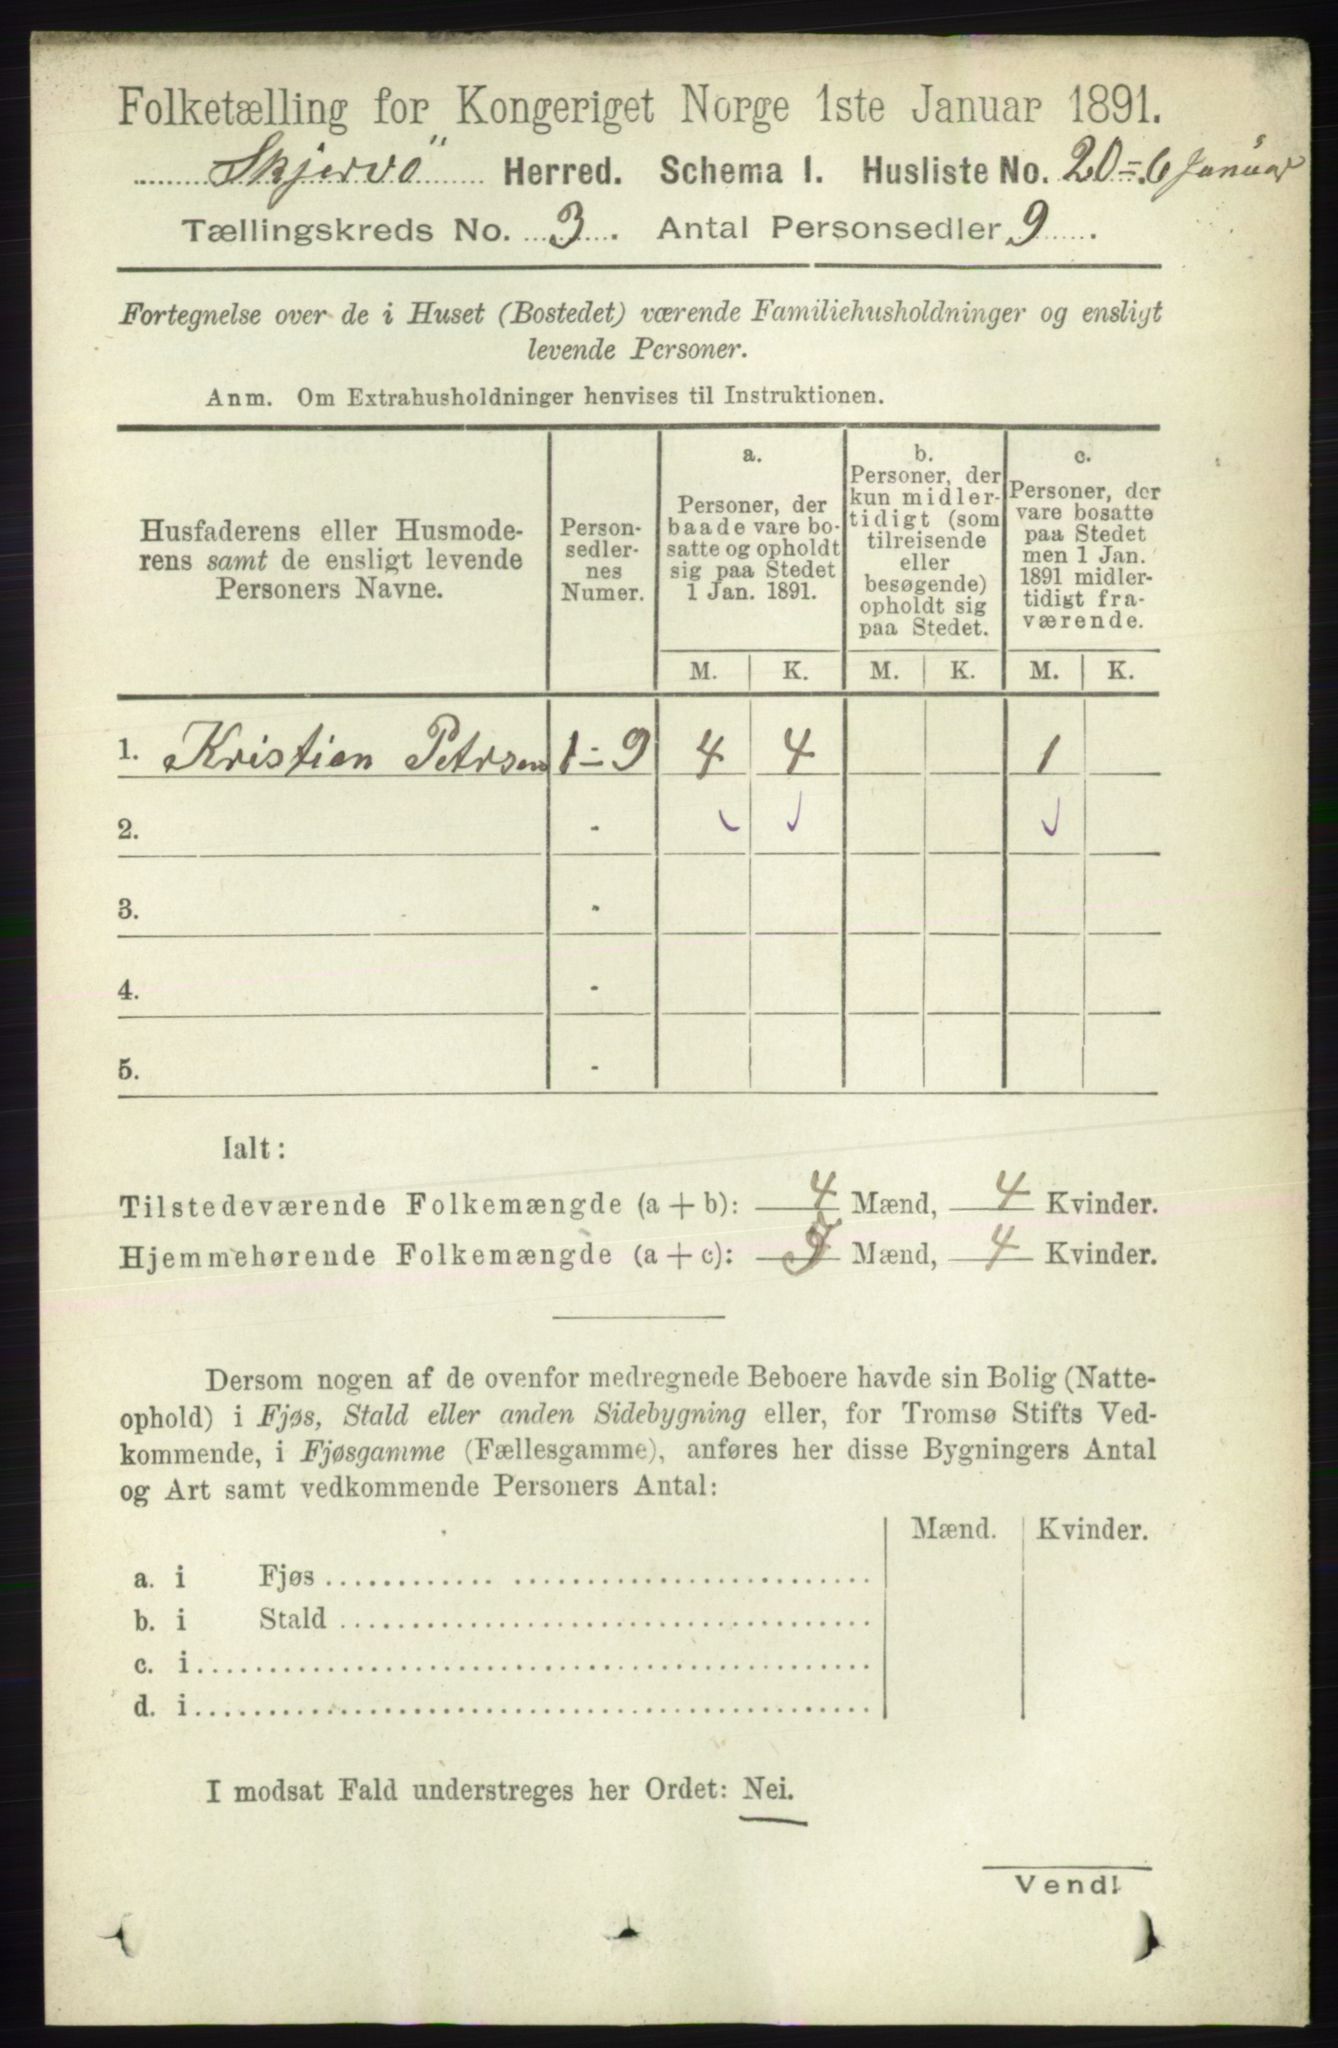 Folketælling for Kongeriget Norge 1ste Januar 1891.
Skjervö Herred. Schema 1. Husliste No. 20 = 6 Januar
Tællingskreds No. 3. Antal Personsedler 9.
Fortegnelse over de i Huset (Bostedet) værende Familiehusholdninger og ensligt
levende Personer.
Anm. Om Extrahusholdninger henvises til Instruktionen.
Husfaderens eller Husmode-
rens samt de ensligt levende
Personers Navne.
Person-
sedler-
nes
Numer.
a.
Personer, der
baade vare bo-
satte og opholdt
sig paa Stedet
1 Jan. 1891.
b.
Personer, der
kun midler-
tidigt (som
tilreisende
eller
besøgende)
opholdt sig
paa Stedet.
c.
Personer, der
vare bosatte
paa Stedet
men 1 Jan.
1891 midler-
tidigt fra-
værende.
M. K. M. K. M. K.
1. Kristian Petrsen 1 = 9 4 4 1
2. -
3. -
4. -
5. -
Ialt:
Tilstedeværende Folkemængde (a + b): 4 Mænd, 4 Kvinder.
Hjemmehørende Folkemængde (a + c): Mænd, 4 Kvinder.
Dersom nogen af de ovenfor medregnede Beboere havde sin Bolig (Natte-
ophold) i Fjøs, Stald eller anden Sidebygning eller, for Tromsø Stifts Ved-
kommende, i Fjøsgamme (Fællesgamme), anføres her disse Bygningers Antal
og Art samt vedkommende Personers Antal:
Mænd. Kvinder.
a. i Fjøs
b. i Stald
c. i
d. i
I modsat Fald understreges her Ordet: Nei.
Vend!